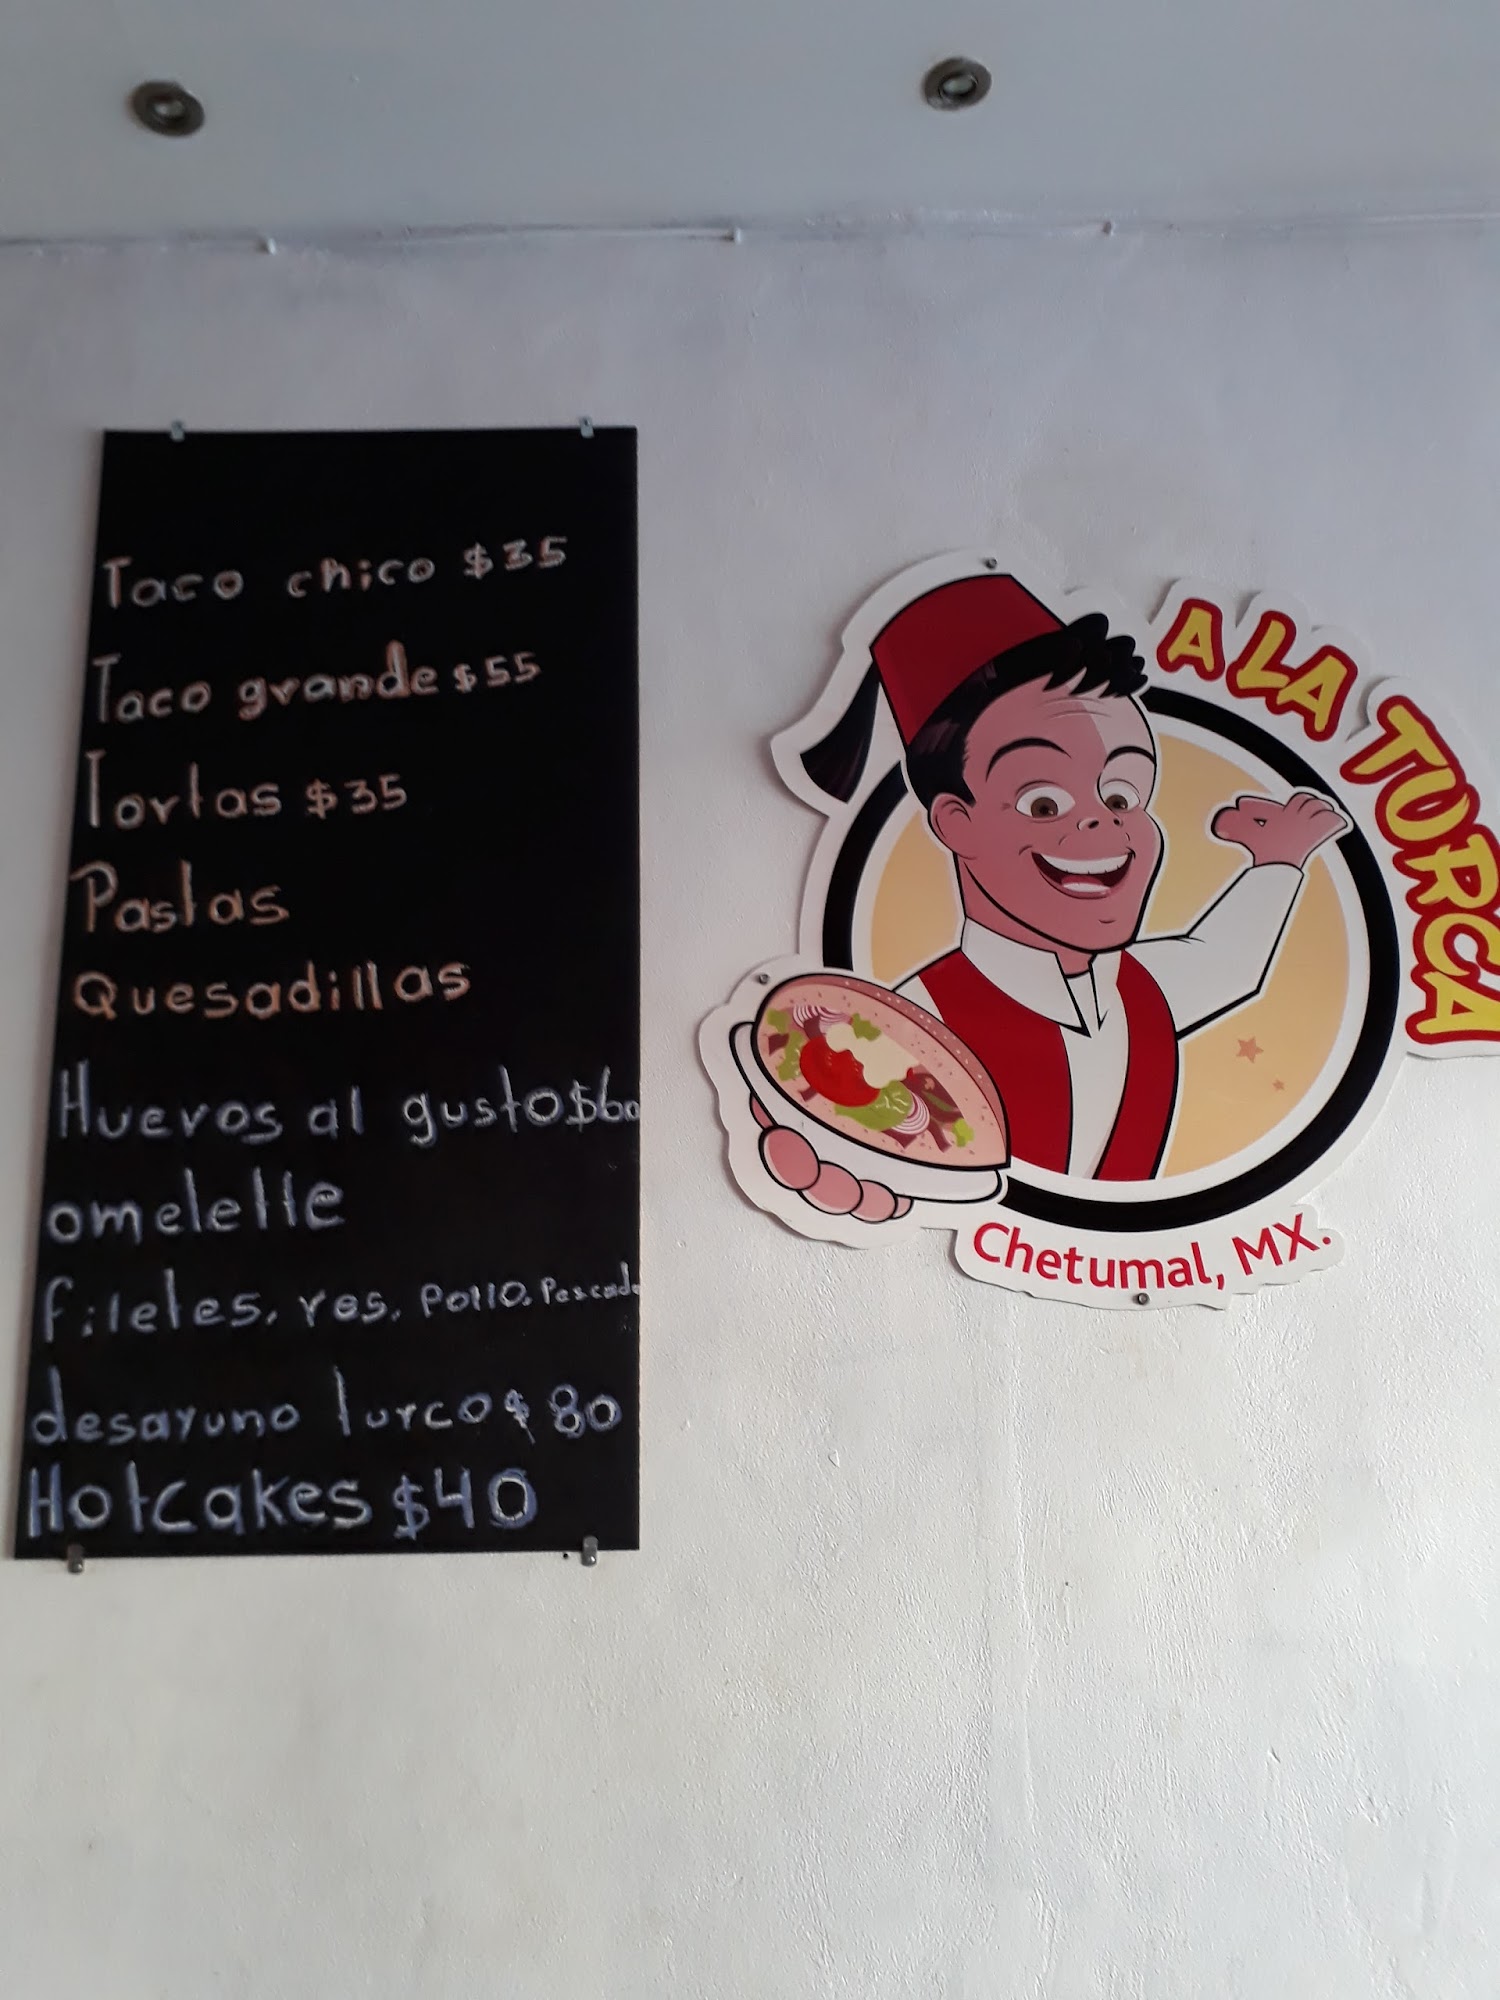 Taco chico $35
Taco grande $55
Tortas $35
Pastas
Quesadillas
Huevos al gusto $60
omelette
filetes. res. Pollo. Pescado
desayuno turco $80
Hotcakes $40
A LA TURCA
Chetumal, MX.